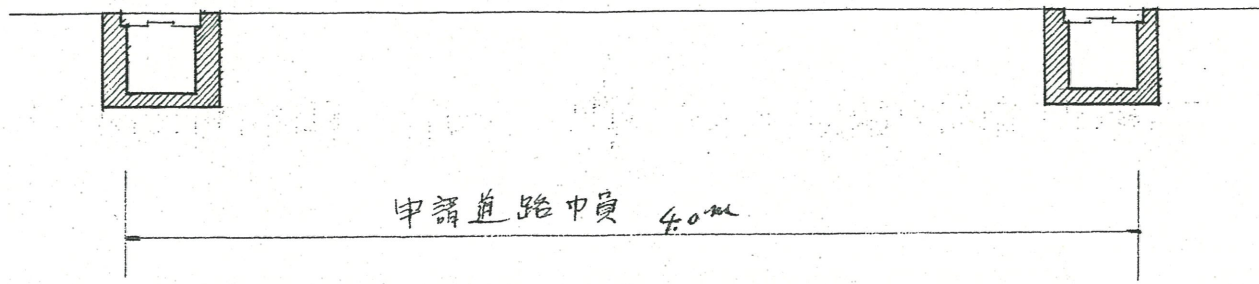 申請道路巾員 4.0m